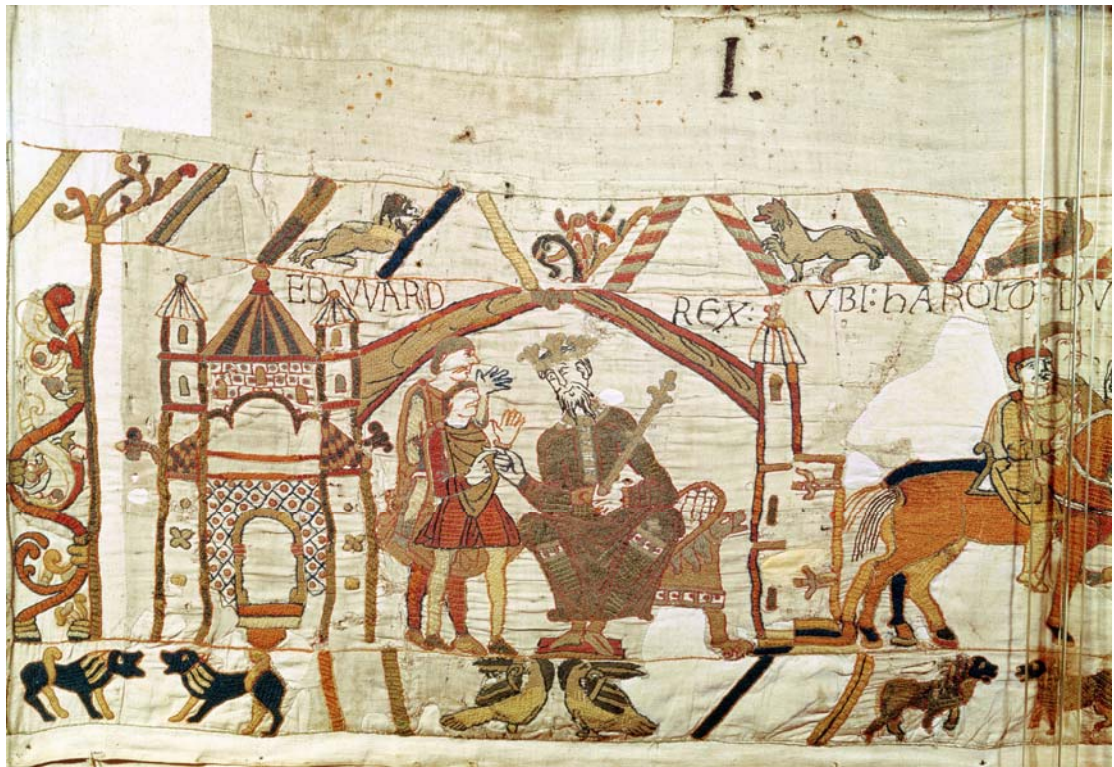 I.
EDVVARD REX: VBI: hAROLD DV